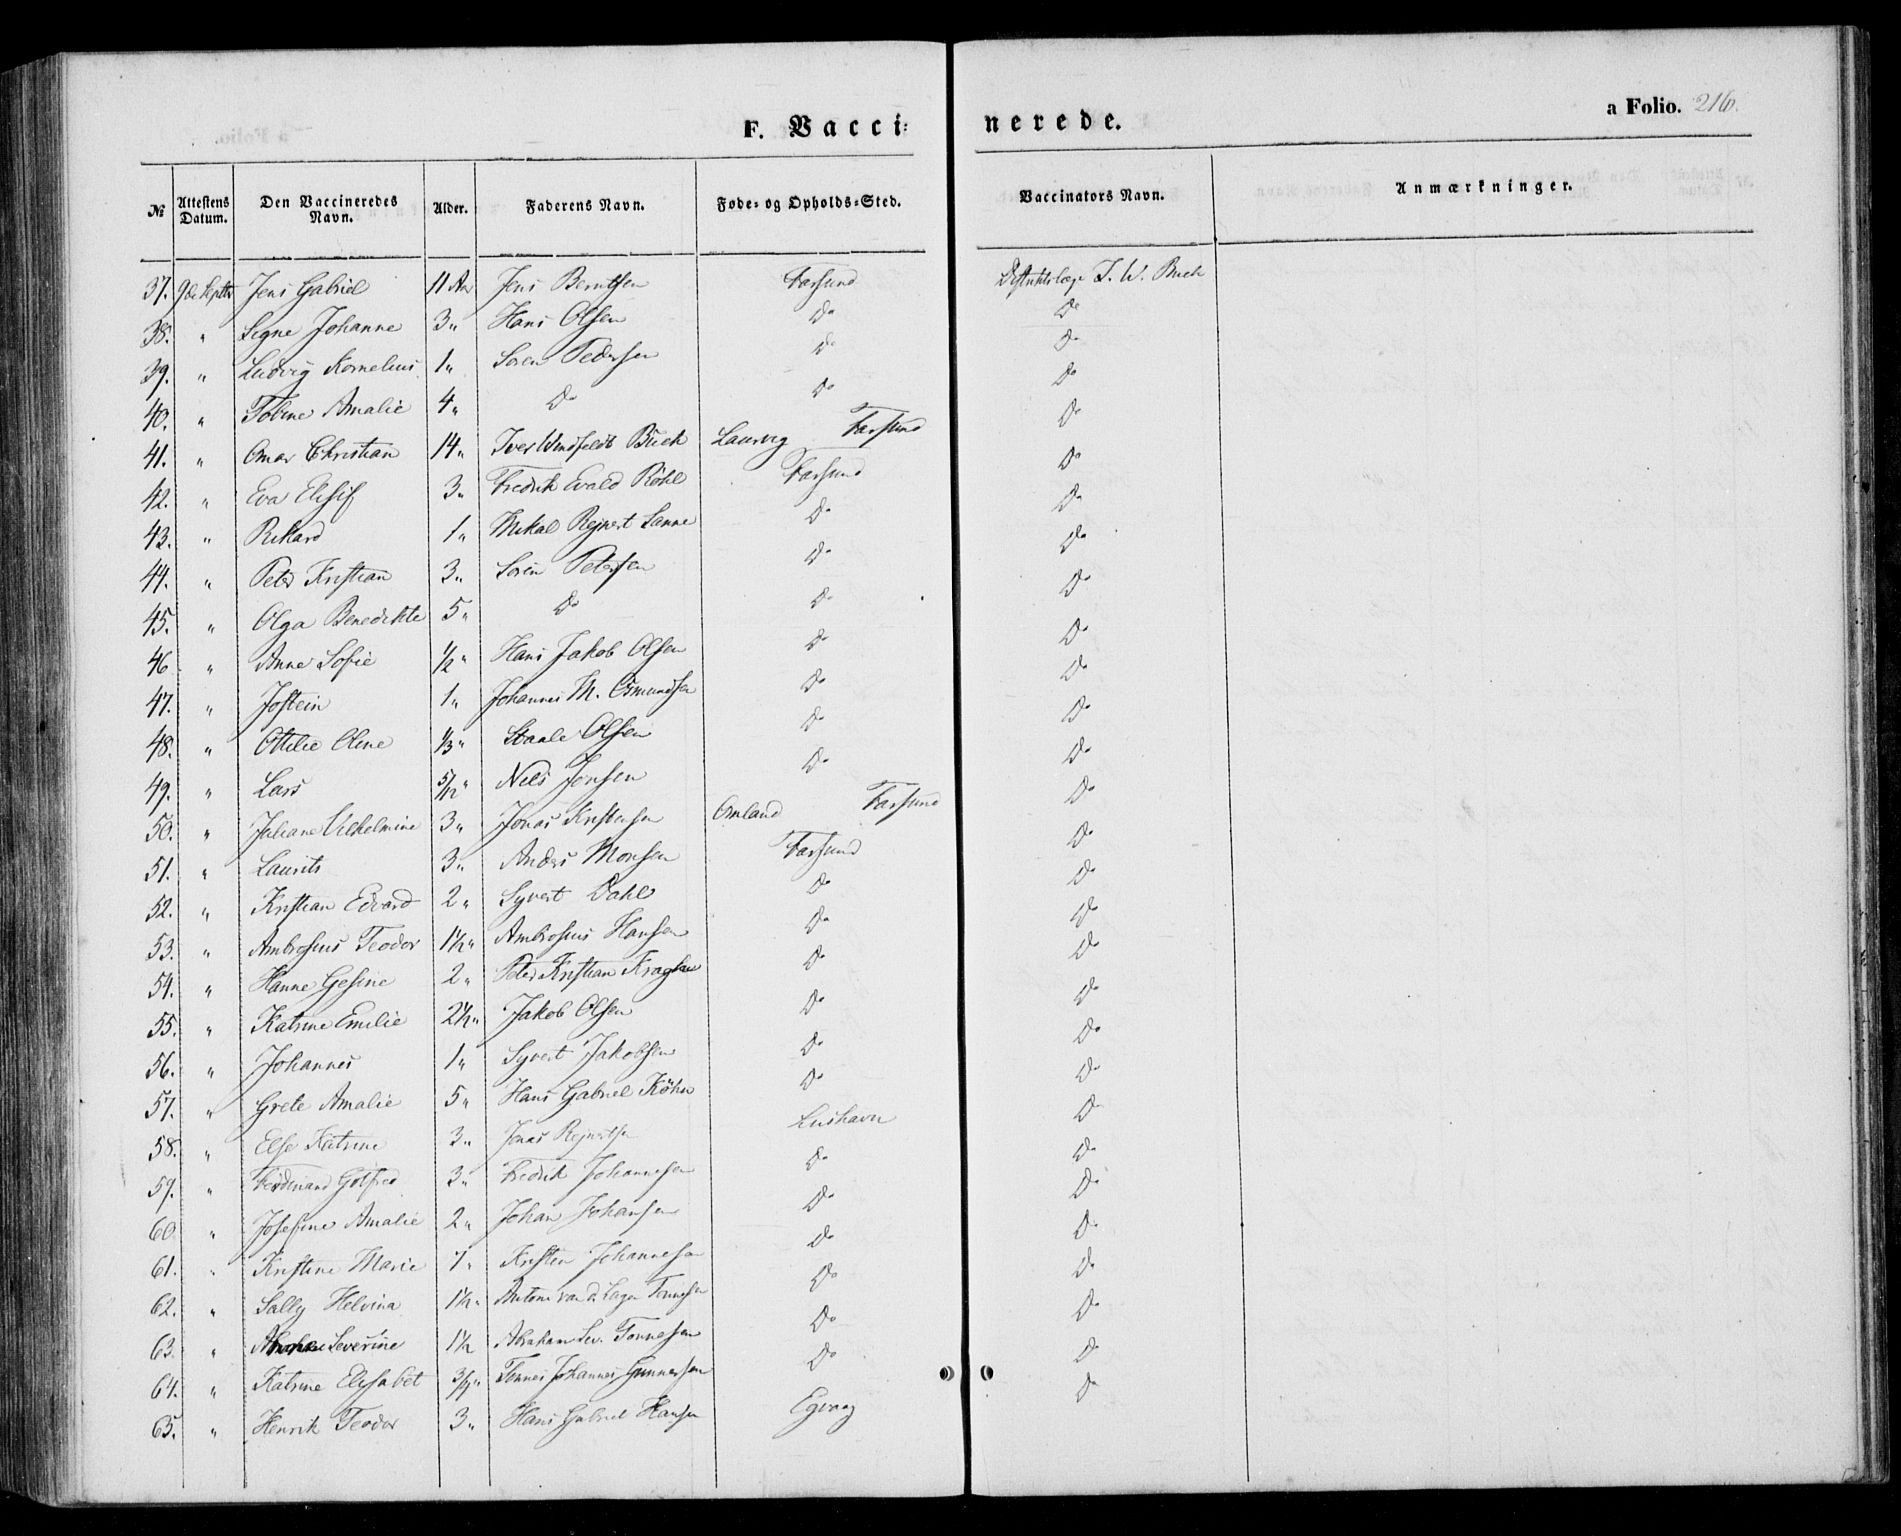 a Folio. 216.
F. Vaccinerede.
№ | Attestens Datum. | Den Vaccineredes Navn. | Alder. | Faderens Navn. | Føde- og Opholds-Sted. | Vaccinators Navn. | Anmærkninger.
37. | 9de Septbr | Jens Gabriel | 11 Aar | Jens Berntsen | Farsund | Distriktslæge I. W. Buch
38. | " | Signe Johanne | 3 " | Hans Olsen | Do | Do
39. | " | Ludvig Kornelius | 1 " | Soren Pedersen | Do | Do
40. | " | Tobine Amalie | 4 " | Do | Do | Do
41. | " | Omar Christian | 14 " | Iver Windfeldt Buch | Laurvig Farsund | Do
42. | " | Eva Elisif | 3 " | Fredrik Evald Röhl | Farsund | Do
43. | " | Rikard | 1 " | Mikal Rejnert Sanne | Do | Do
44. | " | Peter Kristian | 3 " | Soren Petersen | Do | Do
45. | " | Olga Benedikte | 5 " | Do | Do | Do
46 | " | Anne Sofie | 1/2 " | Hans Jakob Olsen | Do | Do
47. | " | Jostein | 1 " | Johannes M. Osmundsen | Do | Do
48. | " | Ottilie Oline | 1/3 " | Staale Olsen | Do | Do
49. | " | Lars | 5/12 " | Nils Jensen | Do | Do
50. | " | Juliane Vilhelmine | 3 " | Jonas Kristensen | Omland Farsund | Do
51. | " | Laurits | 3 " | Anders Monsen | Farsund | Do
52. | " | Kristian Edvard | 2 " | Syvert Dahl | Do | Do
53. | " | Ambrosius Teodor | 1 1/2 " | Ambrosius Hansen | Do | Do
54. | " | Hanne Gesine | 2 " | Peter Kristian | Do | Do
55. | " | Katrine Emilie | 2 1/2 " | Jakob Olsen | Do | Do
56. | " | Johannes | 1 " | Syvert Jakobsen | Do | Do
57. | " | Grete Amalie | 5 " | Hans Gabriel Köhn | Do | Do
58. | " | Else Katrine | 3 " | Jonas Rejnertsen | Lushavn | Do
59. | " | Ferdinand Gotfred | 3 " | Fredrik Johannesen | Do | Do
60 | " | Josefine Amalie | 2 " | Johan Johansen | Do | Do
61. | " | Kristine Marie | 7 " | Kristen Johannesen | Do | Do
62. | " | Sally Helvina | 1 1/2 " | Antoni van d. Lagen Tonnesen | Do | Do
63. | " | Severine | 1 1/2 | Abraham Sev. Tonnesen | Do | Do
64. | " | Katrine Elisabet | " | Tonnes Johannes Gunnersen | Do | Do
65. | " | Henrik Teodor | 3 " | Hans Gabriel Hansen | Egvaag | Do